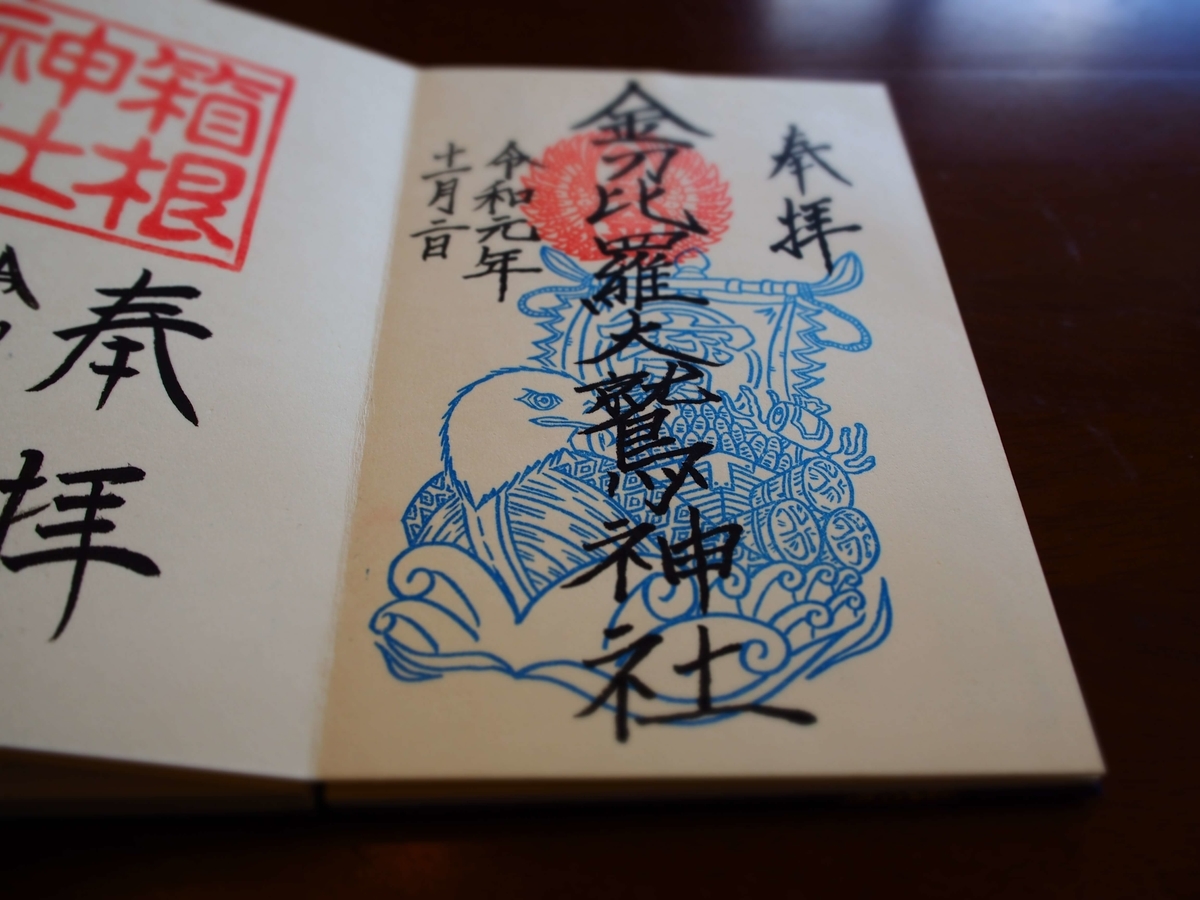 奉拝
金刀比羅大鷲神社
令和元年
十一月二日
箱根
神社
奉拝